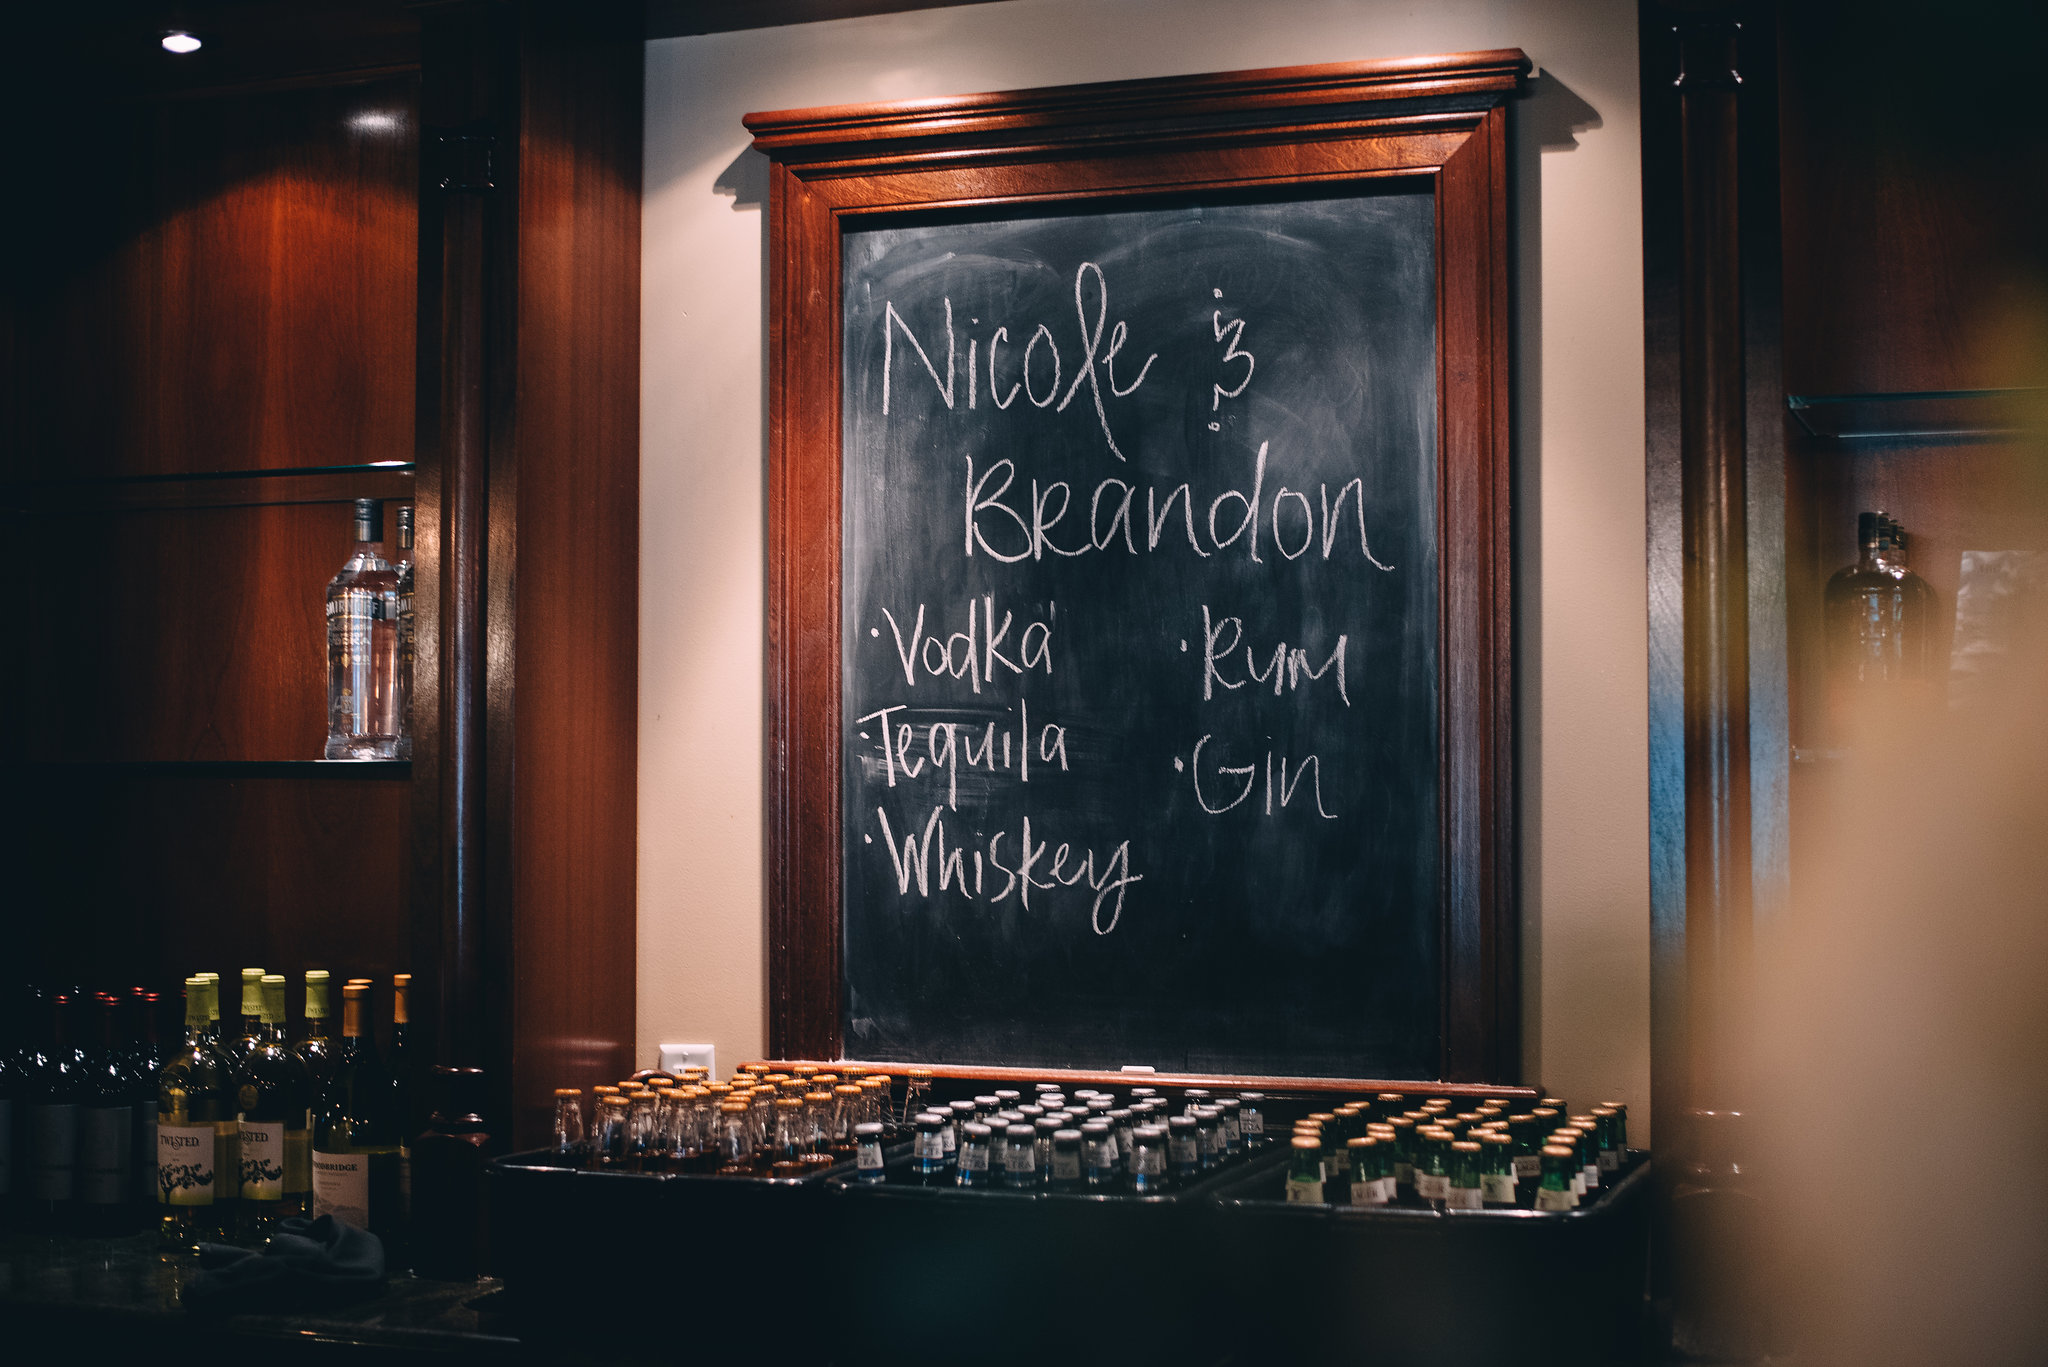 Nicole &
Brandon
· Vodka
· Rum
· Tequila
· Gin
· Whiskey
SMIRNOFF
TWISTED
TWISTED